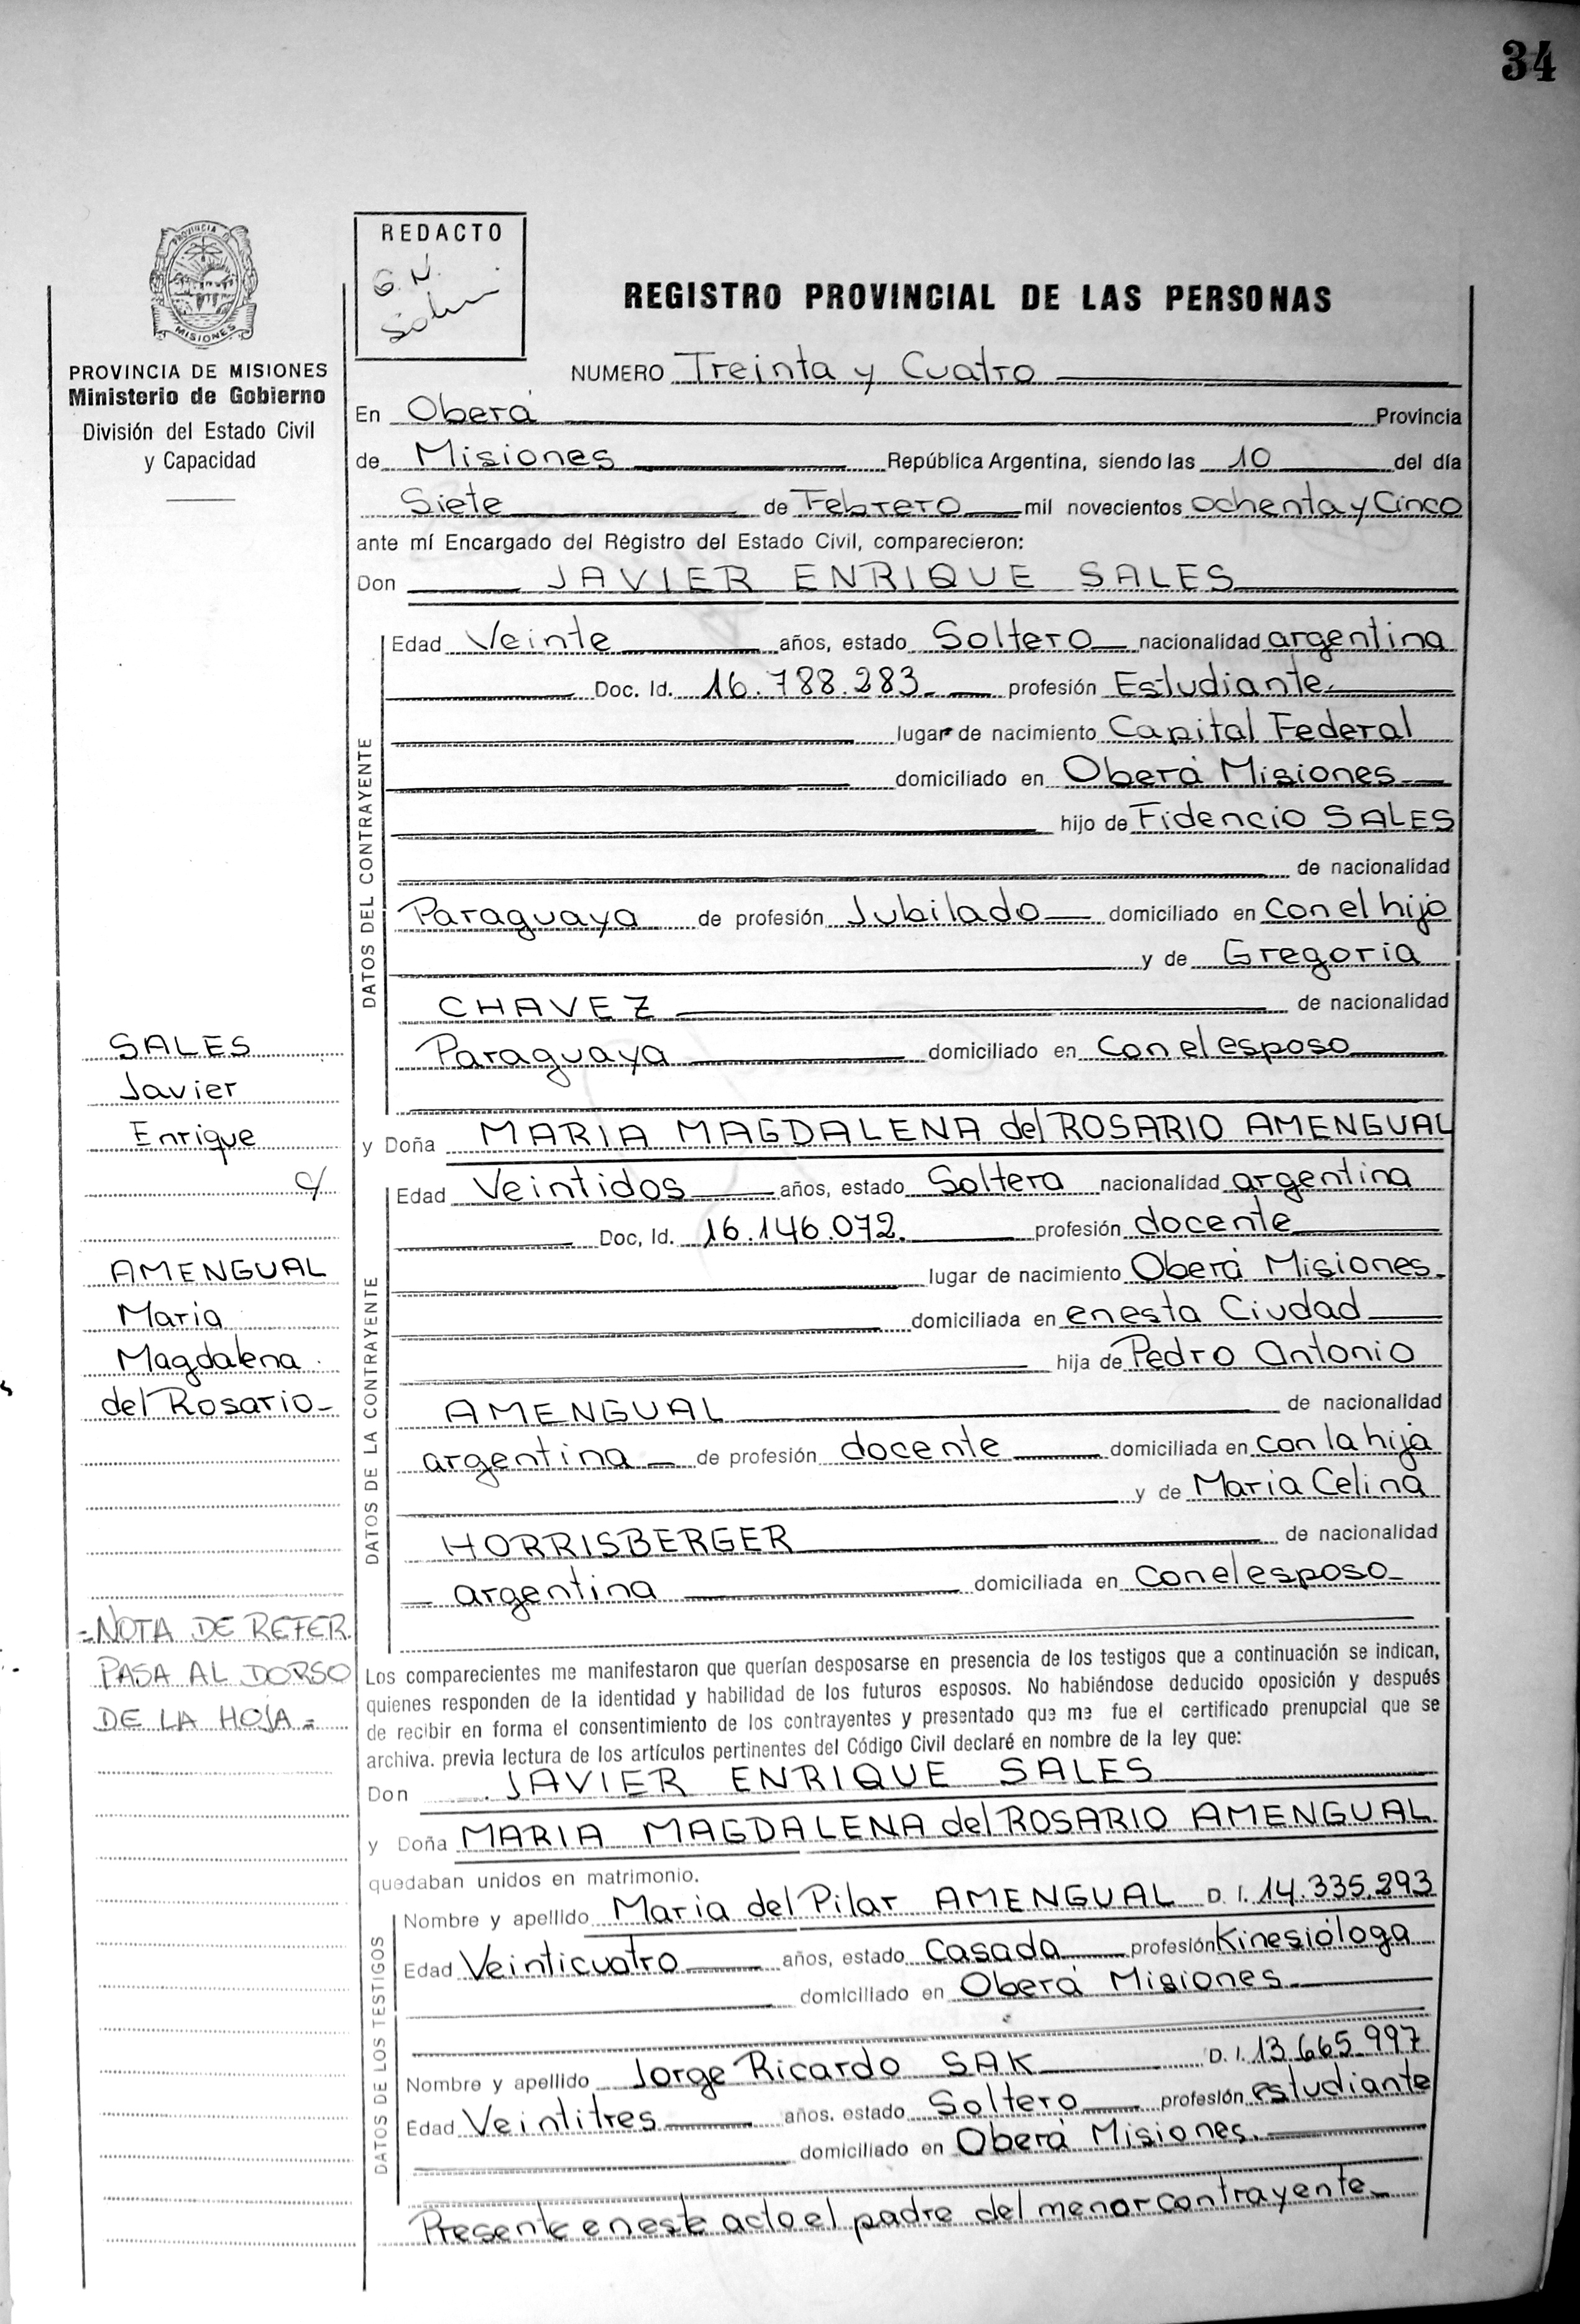 34
PROVINCIA DE
MISIONES
PROVINCIA DE MISIONES
Ministerio de Gobierno
División del Estado Civil
y Capacidad
REDACTO
G. N.
REGISTRO PROVINCIAL DE LAS PERSONAS
NUMERO Treinta y Cuatro
En Oberá Provincia
de Misiones República Argentina, siendo las 10 del día
Siete de Febrero mil novecientos ochenta y Cinco
ante mí Encargado del Régistro del Estado Civil, comparecieron:
Don JAVIER ENRIQUE SALES
DATOS DEL CONTRAYENTE
Edad Veinte años, estado Soltero nacionalidad argentina
Doc. Id. 16.788.283. profesión Estudiante
lugar de nacimiento Capital Federal
domiciliado en Oberá Misiones
hijo de Fidencio SALES
de nacionalidad
Paraguaya de profesión Jubilado domiciliado en con el hijo
y de Gregoria
CHAVEZ de nacionalidad
Paraguaya domiciliado en con el esposo
SALES
Javier
Enrique
c/
AMENGUAL
Maria
Magdalena
del Rosario
y Doña MARIA MAGDALENA del ROSARIO AMENGUAL
DATOS DE LA CONTRAYENTE
Edad Veintidos años, estado Soltera nacionalidad argentina
Doc, Id. 16.146.072. profesión docente
lugar de nacimiento Oberá Misiones
domiciliada en en esta Ciudad
hija de Pedro Antonio
AMENGUAL de nacionalidad
argentina de profesión docente domiciliada en con la hija
y de Maria Celina
HORRISBERGER de nacionalidad
argentina domiciliada en con el esposo
=NOTA DE REFER.
PASA AL DORSO
DE LA HOJA=
Los comparecientes me manifestaron que querían desposarse en presencia de los testigos que a continuación se indican,
quienes responden de la identidad y habilidad de los futuros esposos. No habiéndose deducido oposición y después
de recibir en forma el consentimiento de los contrayentes y presentado que me fue el certificado prenupcial que se
archiva. previa lectura de los artículos pertinentes del Código Civil declaré en nombre de la ley que:
Don JAVIER ENRIQUE SALES
y Doña MARIA MAGDALENA del ROSARIO AMENGUAL
quedaban unidos en matrimonio.
DATOS DE LOS TESTIGOS
Nombre y apellido Maria del Pilar AMENGUAL D. I. 14.335.293
Edad Veinticuatro años, estado Casada profesión Kinesióloga
domiciliado en Oberá Misiones
Nombre y apellido Jorge Ricardo SAK D. I. 13.665.997
Edad Veintitres años. estado Soltero profesión estudiante
domiciliado en Oberá Misiones.
Presente en este acto el padre del menor contrayente